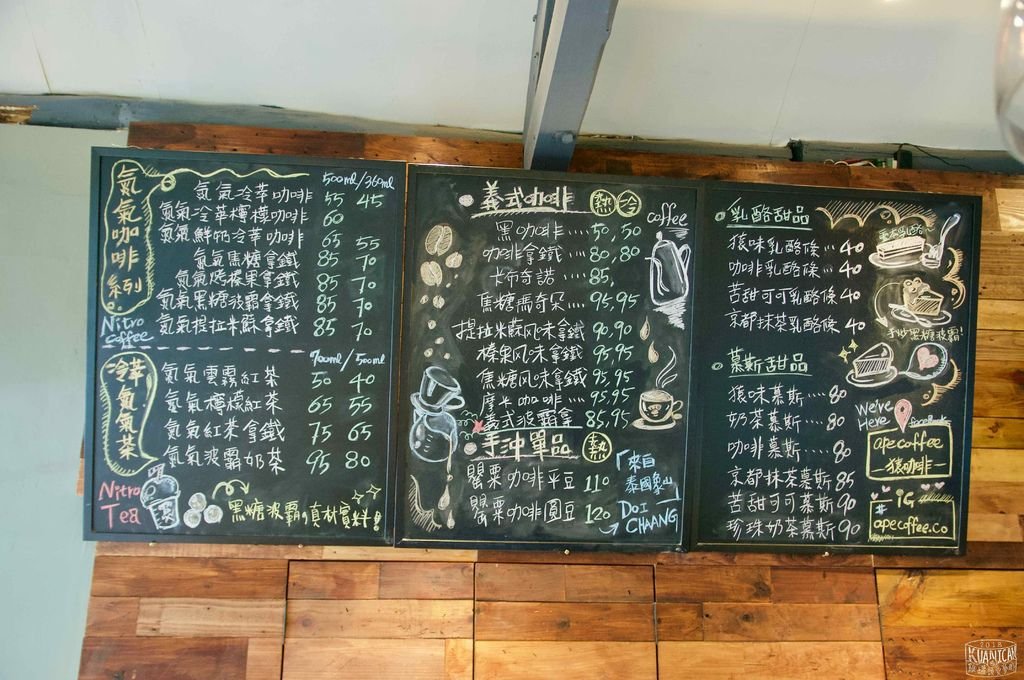 氮氣咖啡系列
500ml/360ml
氮氣冷萃咖啡 55 45
氮氣冷萃檸檬咖啡 60
氮氣鮮奶冷萃咖啡 65 55
氮氣焦糖拿鐵 85 70
氮氣烤榛果拿鐵 85 70
氮氣黑糖波霸拿鐵 85 70
氮氣提拉米蘇拿鐵 85 70
Nitro
Coffee
冷萃氮氣茶
700ml/500ml
氮氣雲霧紅茶 50 40
氮氣檸檬紅茶 65 55
氮氣紅茶拿鐵 75 65
氮氣波霸奶茶 95 80
Nitro
Tea
黑糖波霸,真材實料!
義式咖啡 熱 冷
coffee
黑咖啡....50,50
咖啡拿鐵...80,80
卡布奇諾...85,
焦糖瑪奇朵...95,95
提拉米蘇风味拿鐵 90,90
榛果风味拿鐵 95,95
焦糖风味拿鐵 95,95
摩卡咖啡...95,95
義式波霸拿 85,95
手沖單品 熱
罌粟咖啡平豆 110
罌粟咖啡圓豆 120
「來自
泰國象山」
DOI
CHAANG
乳酪甜品
猿味乳酪條...40
咖啡乳酪條...40
苦甜可可乳酪條 40
京都抹茶乳酪條 40
手炒黑糖波霸!
慕斯甜品
猿味慕斯...80
奶茶慕斯...80
咖啡慕斯...80
京都抹茶慕斯 85
苦甜可可慕斯 90
珍珠奶茶慕斯 90
We're
Here
Facebook
apecoffee
-猿咖啡-
IG
#
apecoffee.co
2018
KUANTCAN